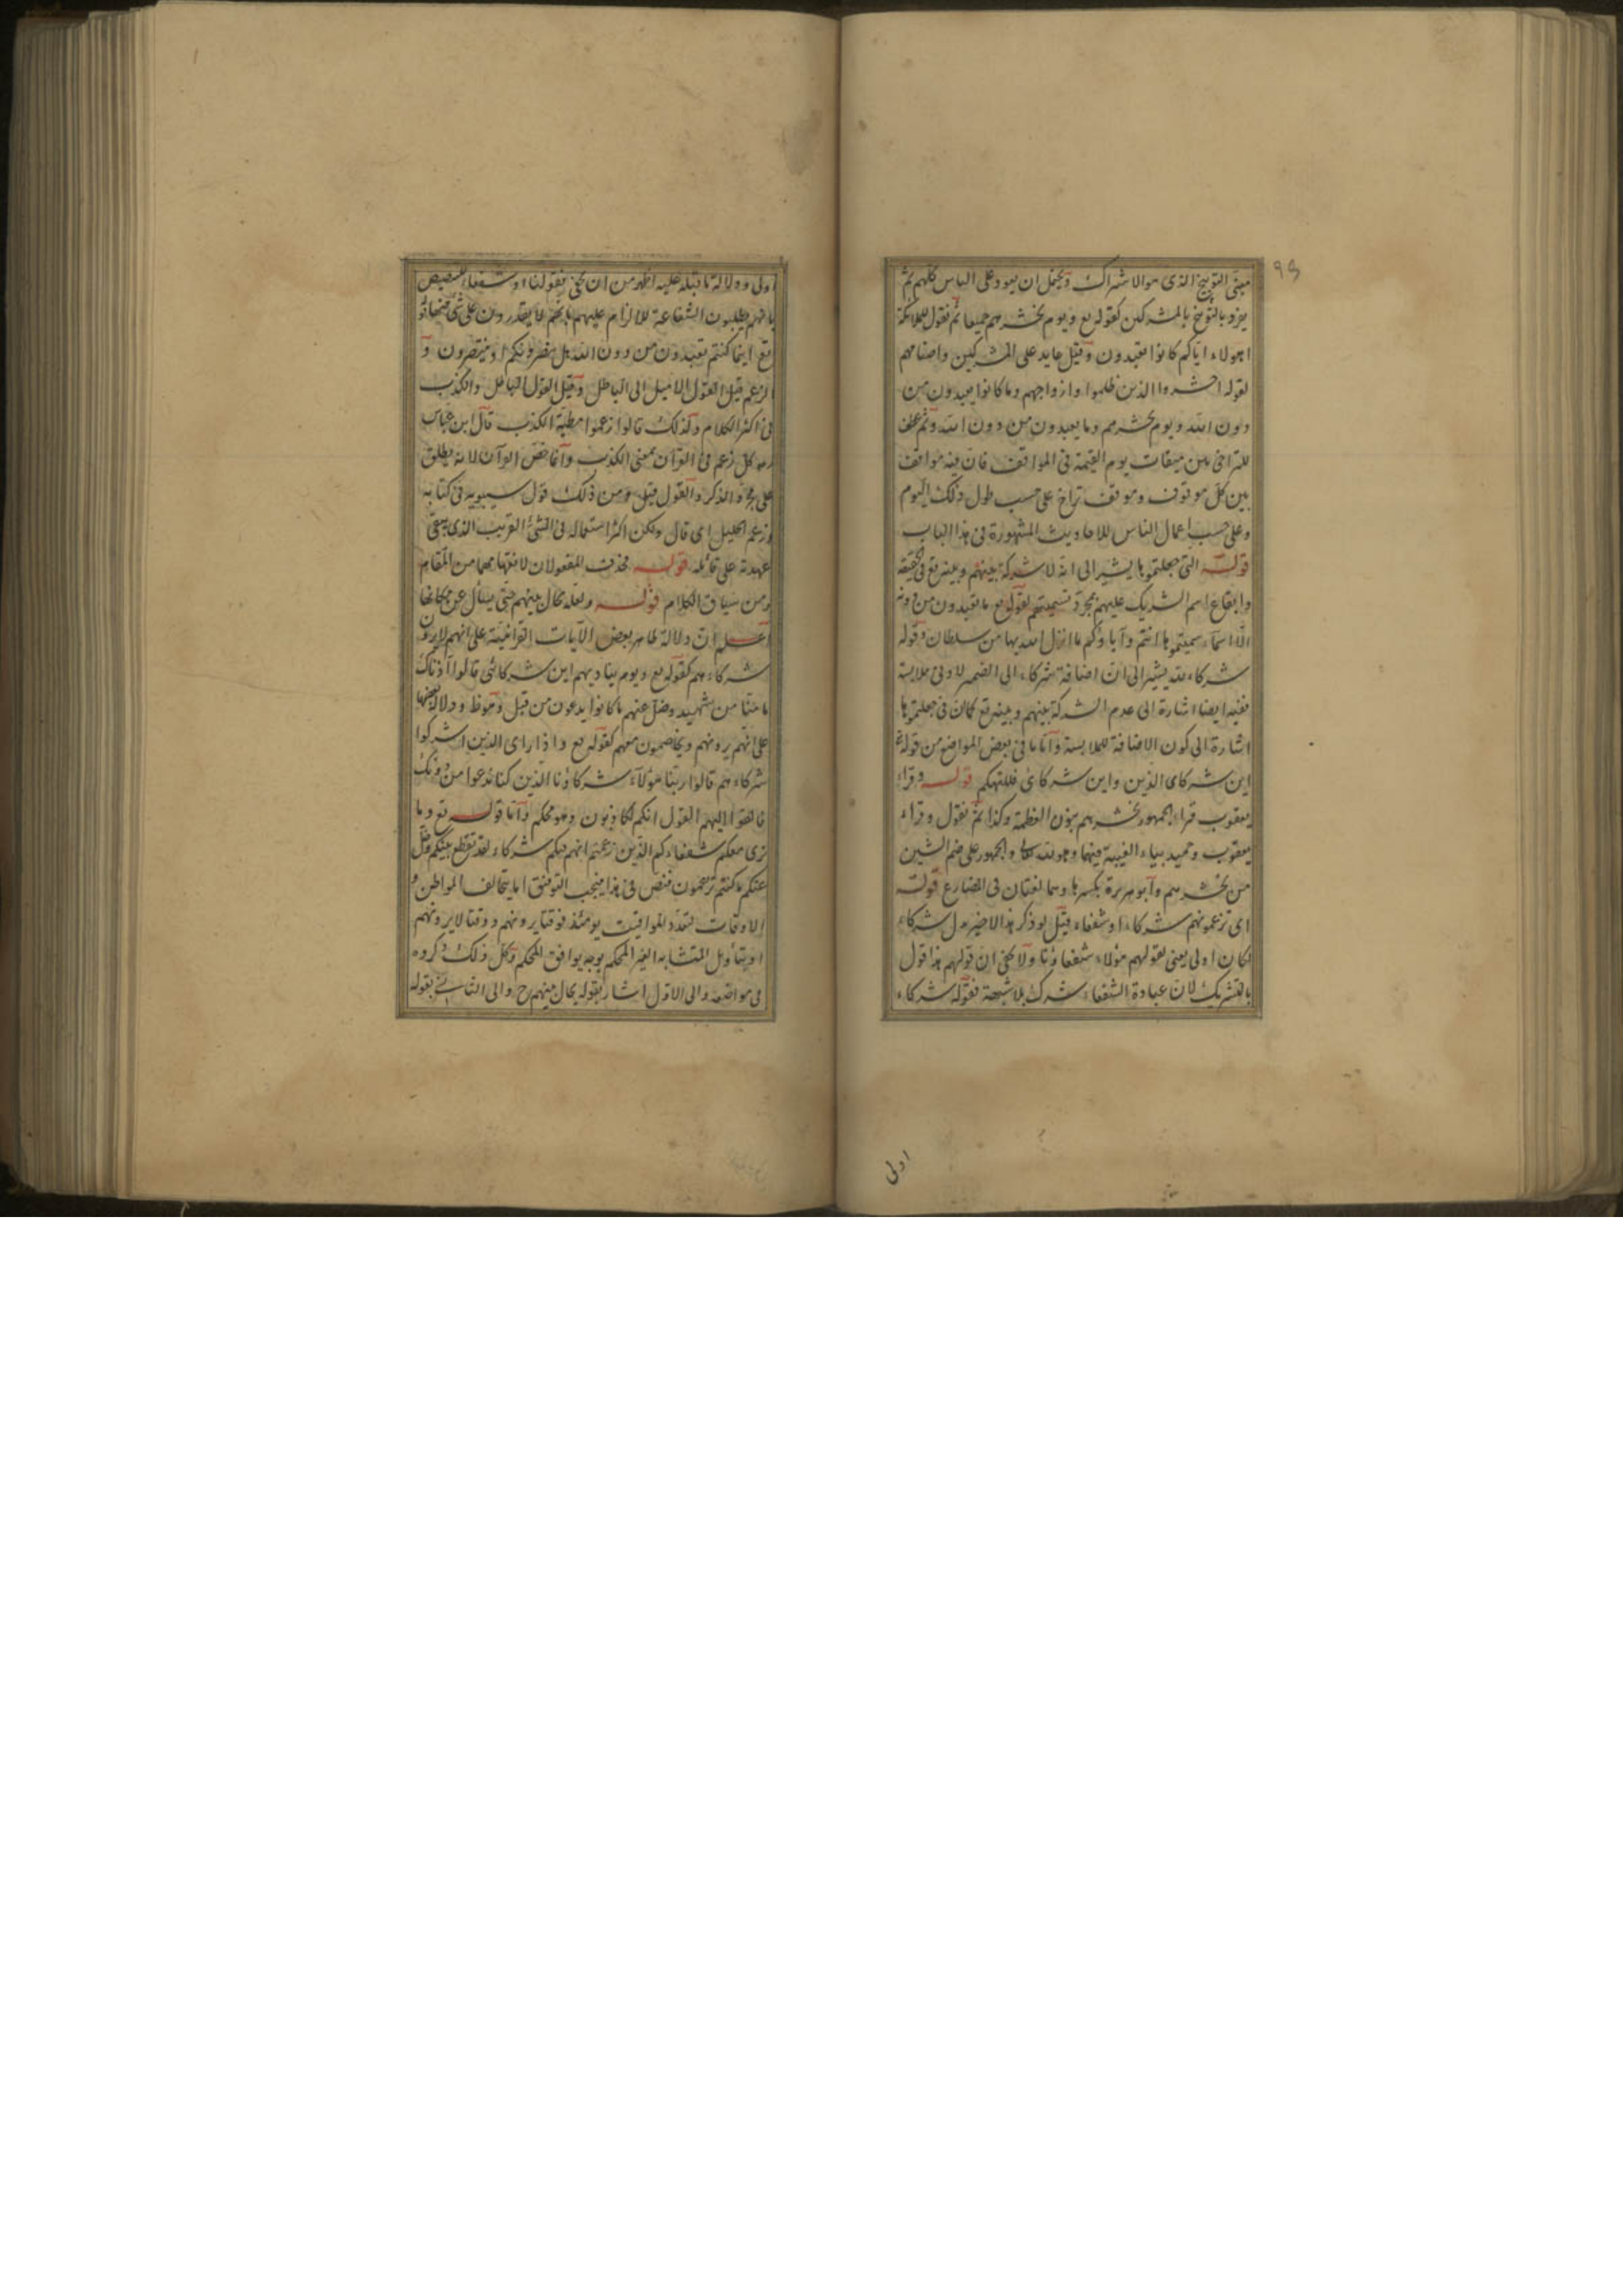 ٩٤
معنى التوبيخ الذى هو الاشراك ويحتمل ان يعود على الناس كلهم ثم
يفرد بالتوبيخ بالمشركين كقوله تع ويوم نحشرهم جميعا ثم نقول للملائكة
اهولاء اياكم كانوا يعبدون وقيل عايد على المشركين واصنامهم
لقوله احشروا الذين ظلموا وازواجهم وما كانوا يعبدون من
دون الله ويوم نحشرهم وما يعبدون من دون الله وثم عطف
للتراخى بين ميقات يوم القيمة فى المواقف فان فيه مواقف
بين كل موقوف وموقف تراخ على حسب طول ذلك اليوم
وعلى حسب اعمال الناس للاحاديث المشهورة فى هذا الباب
قوله التى جعلتموها يشير الى انه لا شركة بينهم وبينه تع فى الحقيقة
وايقاع اسم الشريك عليهم بمجرد تسميتهم لقوله تع ما تعبدون من دونه
الا اسماء سميتموها انتم وآباؤكم ما انزل الله بها من سلطان وقوله
شركاء لله يشير الى ان اضافة شركاء الى الضمير لادنى ملابسة
ففيه ايضا اشارة الى عدم الشركة بينهم وبينه تع كما ان فى جعلتموها
اشارة الى كون الاضافة للملابسة واما ما فى بعض المواضع من قوله تع
اين شركاى الذين واين شركاى فللتهكم قوله وقراء
يعقوب قراء الجمهور نحشرهم بنون العظمة وكذا ثم نقول وقراء
يعقوب وحميد بياء الغيبة فيهما وهو لله تعالى والجمهور على ضم الشين
من نحشرهم وابو هريرة بكسرها وهما لغتان فى المضارع قوله
اى تزعمونهم شركاء او شفعاء قيل لو ذكر هذا الاخير بدل شركاء
لكان اولى يعنى لقولهم هؤلاء شفعاؤنا ولا يخفى ان قولهم هذا قول
بالتشريك لان عبادة الشفعاء شرك بلا شبهة فقوله شركاء
اولى
اولى ودلالة ما قبله عليه اظهر من ان يخفى فقولنا او شفعاء للتنصيص
بانهم يطلبون الشفاعة للالزام عليهم بانهم لا يقدرون على شى
تع اينما كنتم تعبدون من دون الله هل ينصرونكم او ينتصرون و
الزعم قيل القول الاميل الى الباطل وقيل القول الباطل والكذب
فى اكثر الكلام وكذلك قالوا زعموا مطية الكذب قال ابن عباس
رضه كل زعم فى القرآن بمعنى الكذب وانما خص القرآن لانه يطلق
على مجرد الذكر والقول قيل ومن ذلك قول سيبويه فى كتابه
وزعم الخليل اى قال ولكن اكثر استعماله فى الشئ الغريب الذى يبقى
عهدته على قائله قوله فحذف المفعولان لانفهامهما من المقام
ومن سياق الكلام قوله ولعله يحال بينهم حتى يسأل عن مكانها
اعلم ان دلالة ظاهر بعض الآيات القرآنية على انهم لا يرون
شركاءهم كقوله تع ويوم يناديهم اين شركائى قالوا آذناك
ما منا من شهيد وضل عنهم ما كانوا يدعون من قبل ودلالة بعضها
على انهم يرونهم ويخاصمون معهم كقوله تع واذا راى الذين اشركوا
شركاءهم قالوا ربنا هؤلاء شركاؤنا الذين كنا ندعوا من دونك
فالقوا اليهم القول انكم لكاذبون وهو محكم واما قوله تع وما
نرى معكم شفعاءكم الذين زعمتم انهم فيكم شركاء لقد تقطع بينكم وضل
عنكم ما كنتم تزعمون فنص فى هذا فيجب التوفيق اما بتخالف المواطن و
الاوقات لتعدد المواقيت يومئذ فوقتا يرونهم ووقتا لا يرونهم
او بتأويل المتشابه الغير المحكم بوجه يوافق المحكم وكل ذلك ذكروه
فى مواضعه والى الاول اشار بقوله يحال بينهم ح والى الثانى بقوله